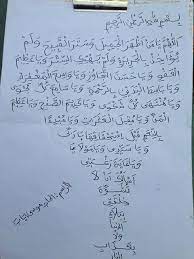 بسم الله الرحمن الرحيم
اللهم يا من أظهر الجميل وستر القبيح ولم
يؤاخذ بالجريرة ولم يهتك الستر ويا عظيم
العفو ويا حسن التجاوز ويا واسع المغفرة
ويا باسط اليدين بالرحمة ويا سامع كل نجوى
ويا منتهى كل شكوى ويا كريم الصفح ويا عظيم
المن ويا مقيل العثرات ويا مبتدئا
بالنعم قبل استحقاقها يا رب
ويا سيدي ويا مولاي
ويا غاية رغبتي
أسألك أن لا
تشوه
ولا
بعذاب
النار